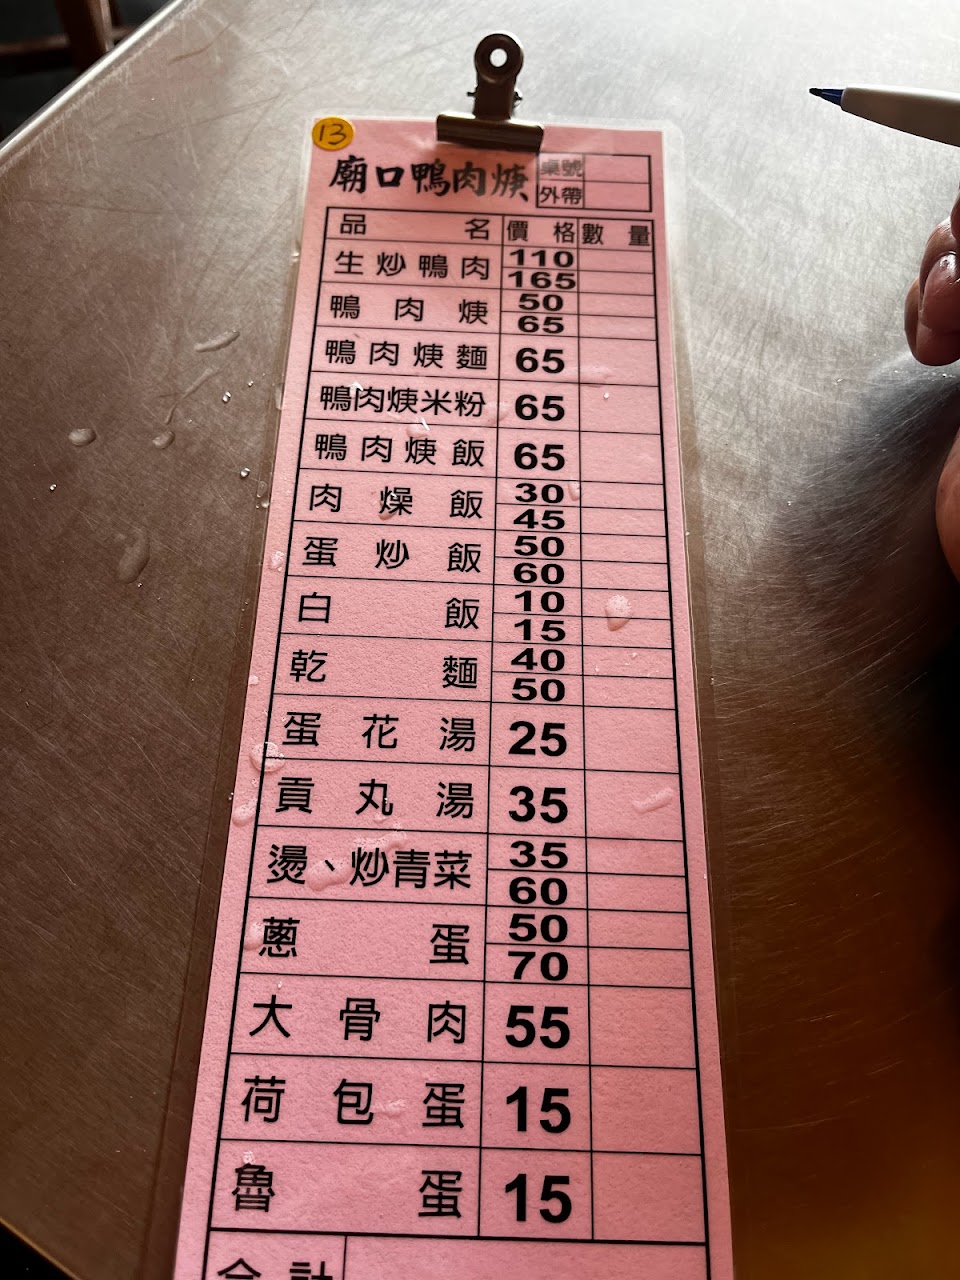 13
廟口鴨肉焿
桌號
外帶
品名 價格 數量
生炒鴨肉 110 165
鴨肉焿 50 65
鴨肉焿麵 65
鴨肉焿米粉 65
鴨肉焿飯 65
肉燥飯 30 45
蛋炒飯 50 60
白飯 10 15
乾麵 40 50
蛋花湯 25
貢丸湯 35
燙、炒青菜 35 60
蔥蛋 50 70
大骨肉 55
荷包蛋 15
魯蛋 15
合計